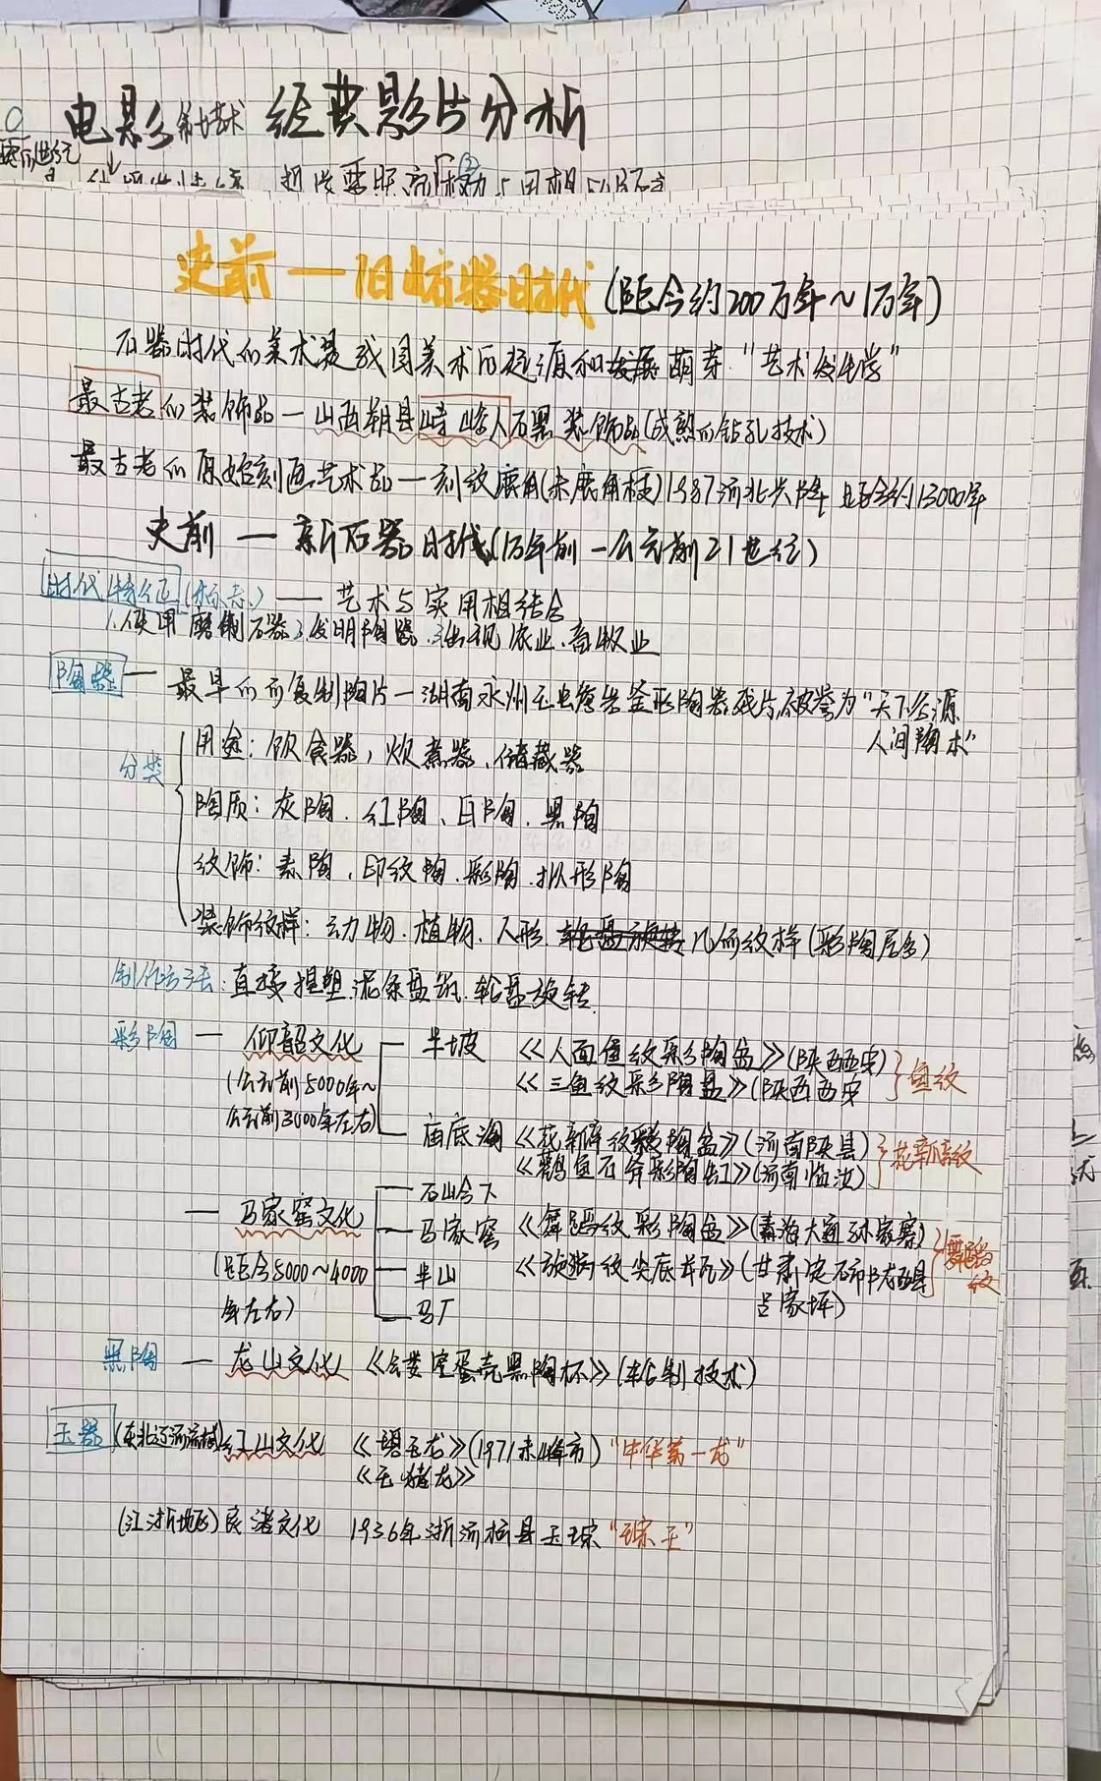 电影 经典影片分析
史前 — 旧石器时代 (距今约200万年～1万年)
石器时代的美术是我国美术的起源和发展萌芽 "艺术发生学"
最古老的装饰品 — 山西朔县峙峪人石墨装饰品(成熟的钻孔技术)
最古老的原始刻画艺术品 — 刻纹鹿角(赤鹿角枝)1987河北兴隆 距今约13000年
史前 — 新石器时代(1万年前 — 公元前21世纪)
时代特征(标志) — 艺术与实用相结合
1.使用磨制石器 2发明陶器 3出现农业、畜牧业
陶器 — 最早的可复制陶片 — 湖南永州玉蟾岩釜形陶器残片,被誉为"天下谷源
人间陶本"
分类
用途：饮食器，炊煮器、储藏器
陶质：灰陶、红陶、白陶、黑陶
纹饰：素陶、印纹陶、彩陶、拟形陶
装饰纹样：动物、植物、人形 轮盘旋转 几何纹样(彩陶居多)
制作方法：直接捏塑、泥条盘筑、轮盘旋转
彩陶 — 仰韶文化 半坡 《人面鱼纹彩陶盆》(陕西西安) 鱼纹
(公元前5000年～ 《三鱼纹彩陶盆》(陕西西安
公元前3000年左右) 庙底沟 《花瓣纹彩陶盆》(河南陕县) 花瓣纹
《鹳鱼石斧彩陶缸》(河南临汝)
— 马家窑文化 石岭下
马家窑 《舞蹈纹彩陶盆》(青海大通孙家寨) 舞蹈纹
(距今5000～4000 半山 《旋涡纹尖底瓶》(甘肃定西市陇西县
年左右) 马厂 吕家坪)
黑陶 — 龙山文化 《镂空蛋壳黑陶杯》(轮制技术)
玉器 (东北辽河流域)红山文化 《碧玉龙》(1971赤峰市) "中华第一龙"
《玉猪龙》
(江浙地区) 良渚文化 1936年浙江杭县玉琮 "琮王"